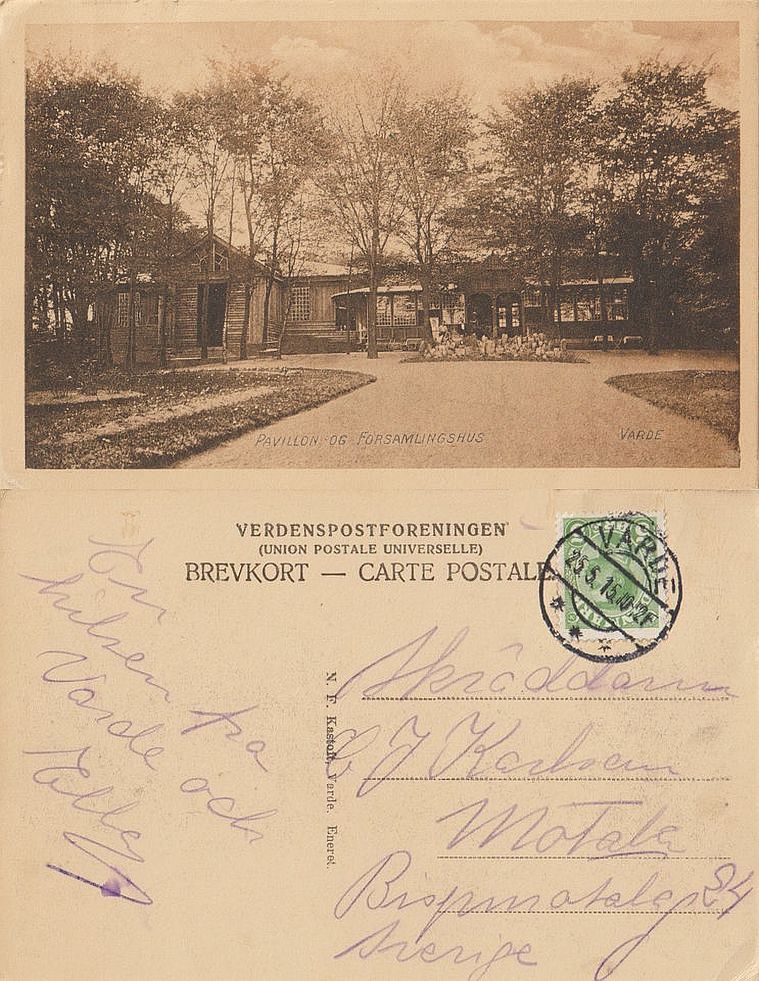 PAVILLON OG FORSAMLINGSHUS
VARDE
VERDENSPOSTFORENINGEN
(UNION POSTALE UNIVERSELLE)
BREVKORT — CARTE POSTALE
VARDE
25.5.15.10-12F
En
hilsen på
Varde och
N. F. Kastoft, Varde. Eneret.
Skräddaren
J Karlsen
Motala
Bispmotalag 24
Sverige